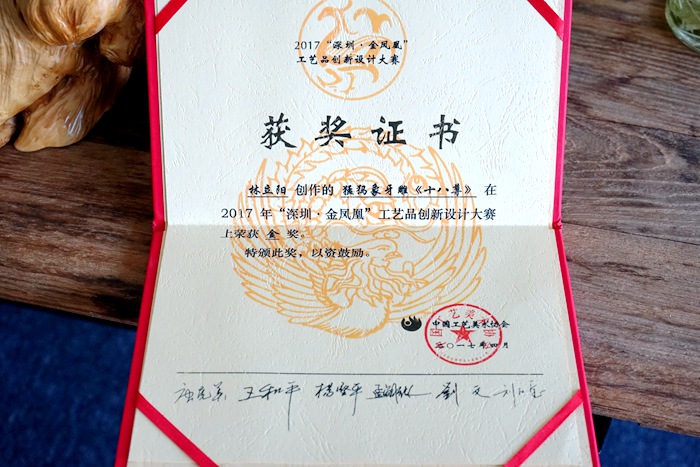 2017“深圳·金凤凰”
工艺品创新设计大赛
获奖证书
林立阳 创作的 猛犸象牙雕《十八尊》 在
2017年“深圳·金凤凰”工艺品创新设计大赛
上荣获 金 奖。
特颁此奖，以资鼓励。
中国工艺美术协会
二〇一七年四月
王和平